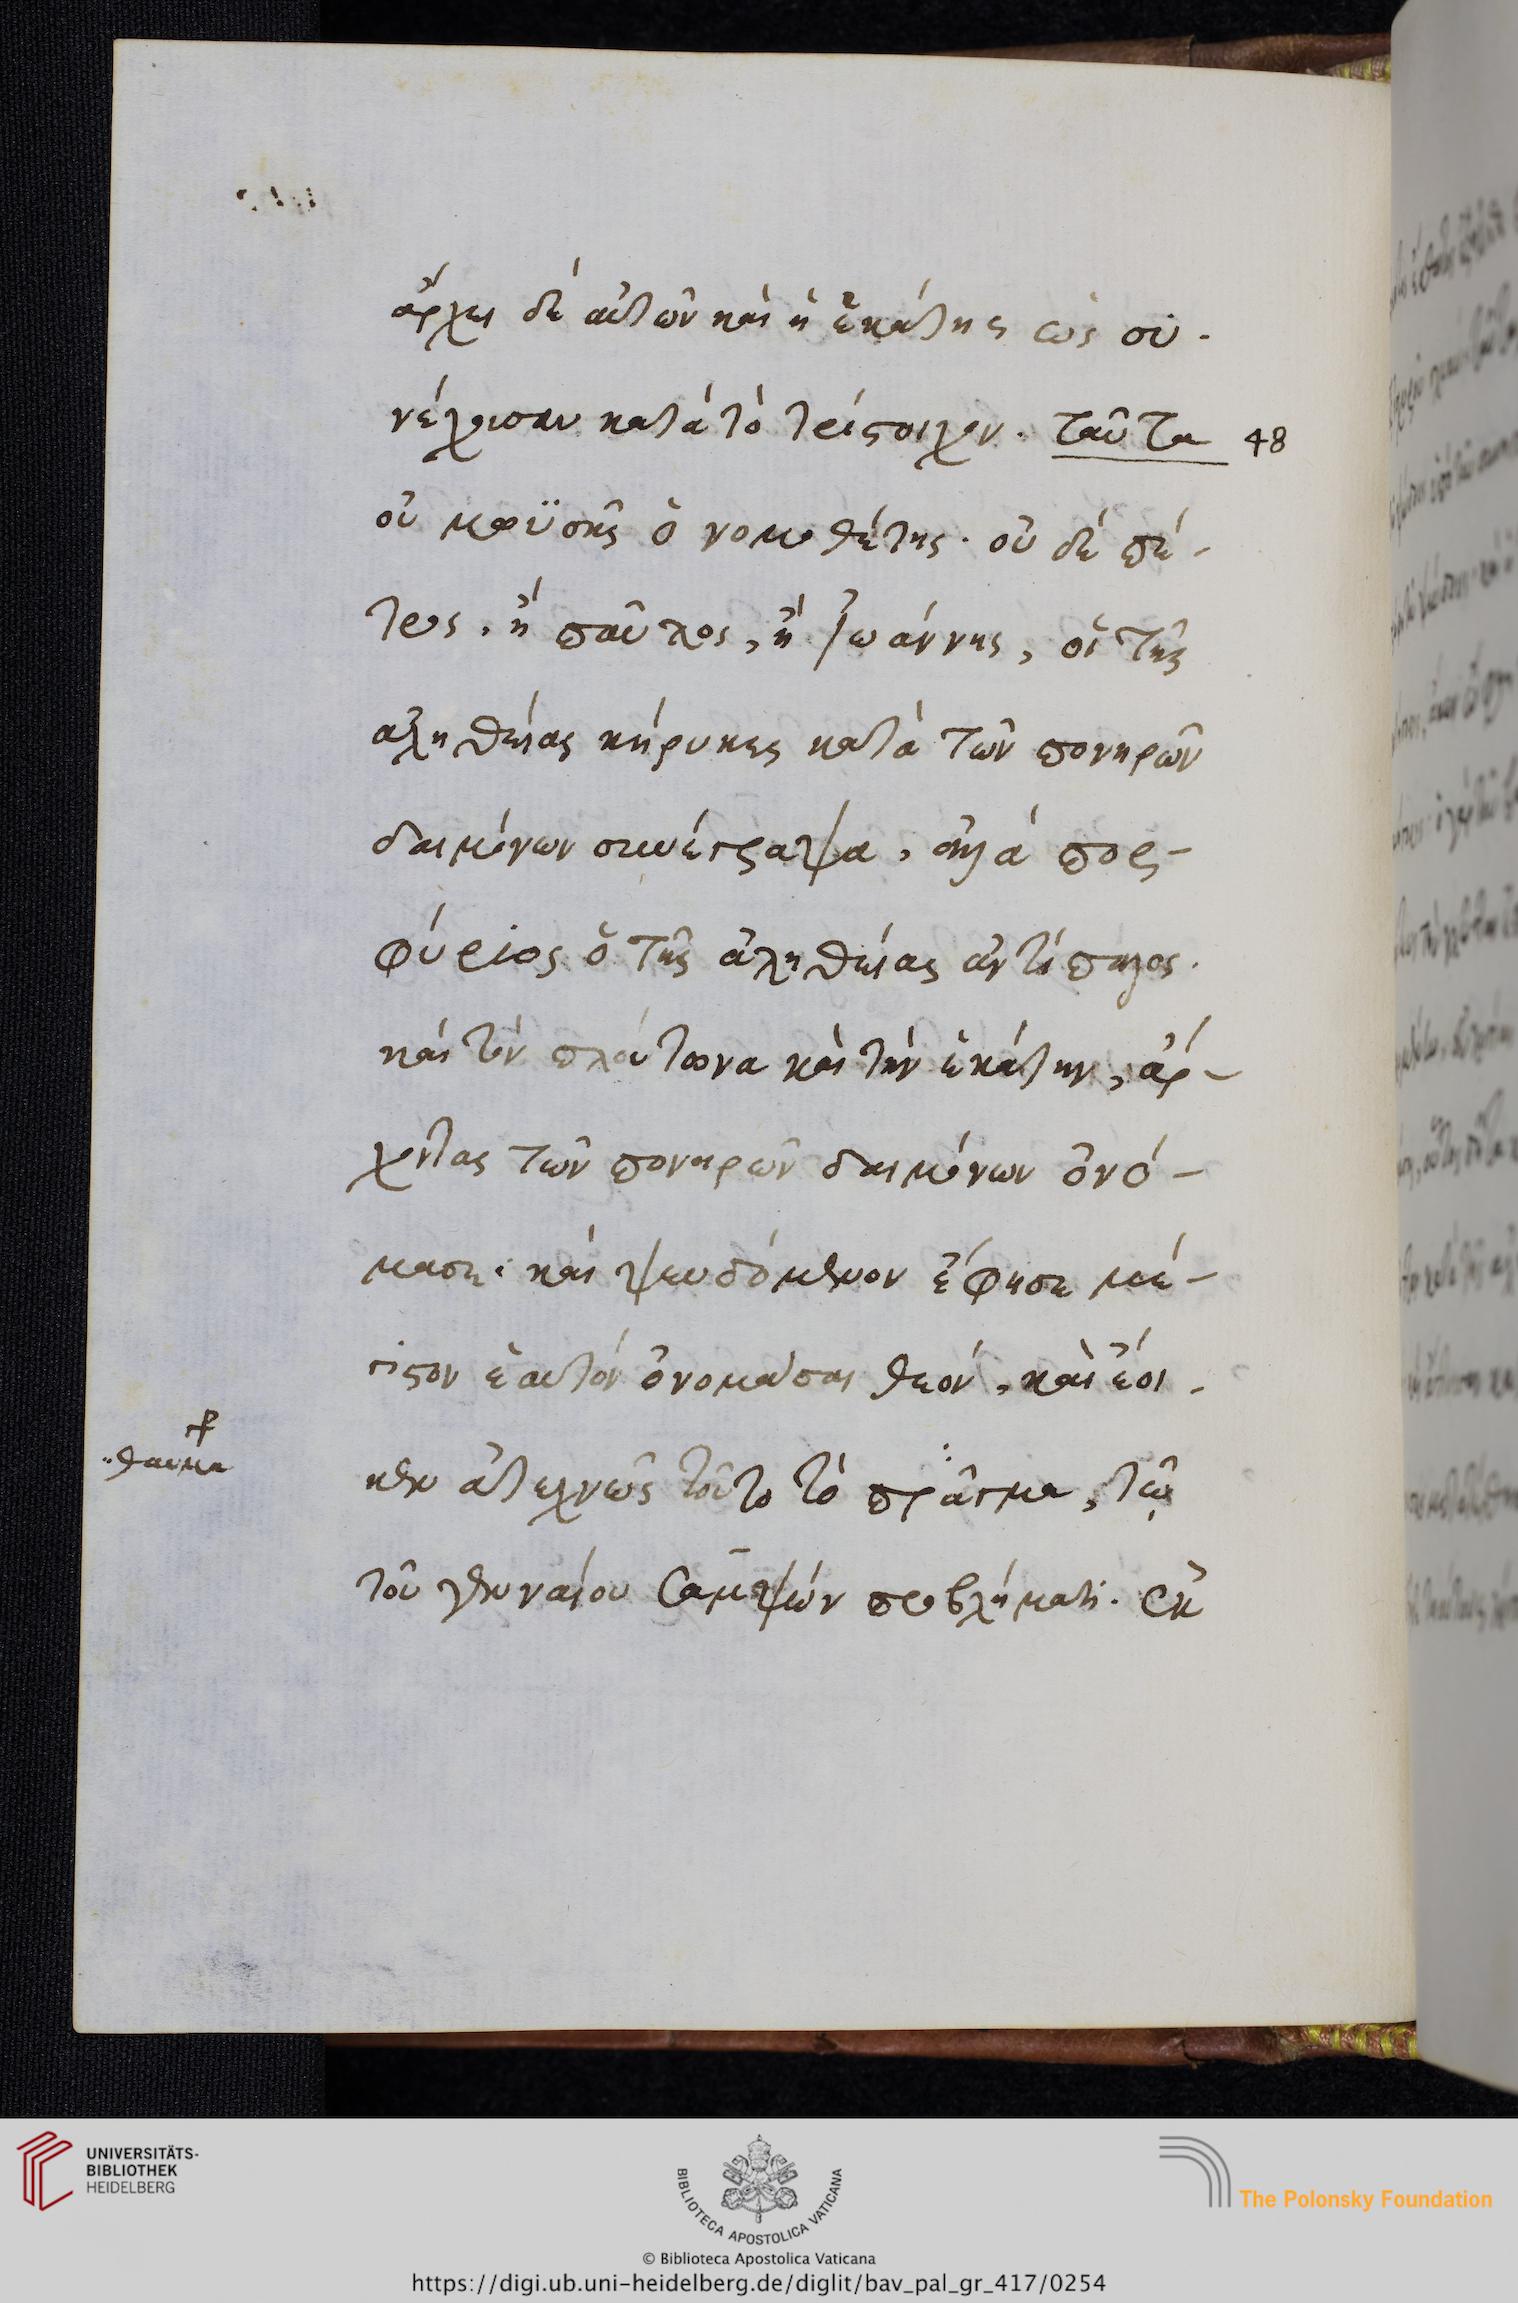 ἄρχει δὲ αὐτῶν καὶ ἡ ἑκάτης ὡς συ-
νέχουσαν κατὰ τὸ τρίστοιχον. ταῦτα 48
οὐ μωϋσῆς ὁ νομοθέτης. οὐ δὲ πέ-
τρος, ἢ παῦλος, ἢ Ἰωάννης, οἱ τῆς
ἀληθείας κήρυκες κατὰ τῶν πονηρῶν
δαιμόνων συνέγραψα, ἀλλὰ πορ-
φύριος ὁ τῆς ἀληθείας ἀντίπαλος.
καὶ τὸν πλούτωνα καὶ τὴν ἑκάτην, ἄρ-
χοντας τῶν πονηρῶν δαιμόνων ὀνό-
μασε. καὶ ψευδόμενον ἔφησε μέ-
γιστον ἑαυτὸν ὀνομάσαι θεόν, καὶ ἔοι-
θαῦμα
κεν ἀτεχνῶς τοῦτο τὸ πρᾶγμα, τῷ
τοῦ γενναίου Σαμψών προβλήματι. Ἐκ
UNIVERSITÄTS-
BIBLIOTHEK
HEIDELBERG
BIBLIOTECA APOSTOLICA VATICANA
© Biblioteca Apostolica Vaticana
The Polonsky Foundation
https://digi.ub.uni-heidelberg.de/diglit/bav_pal_gr_417/0254